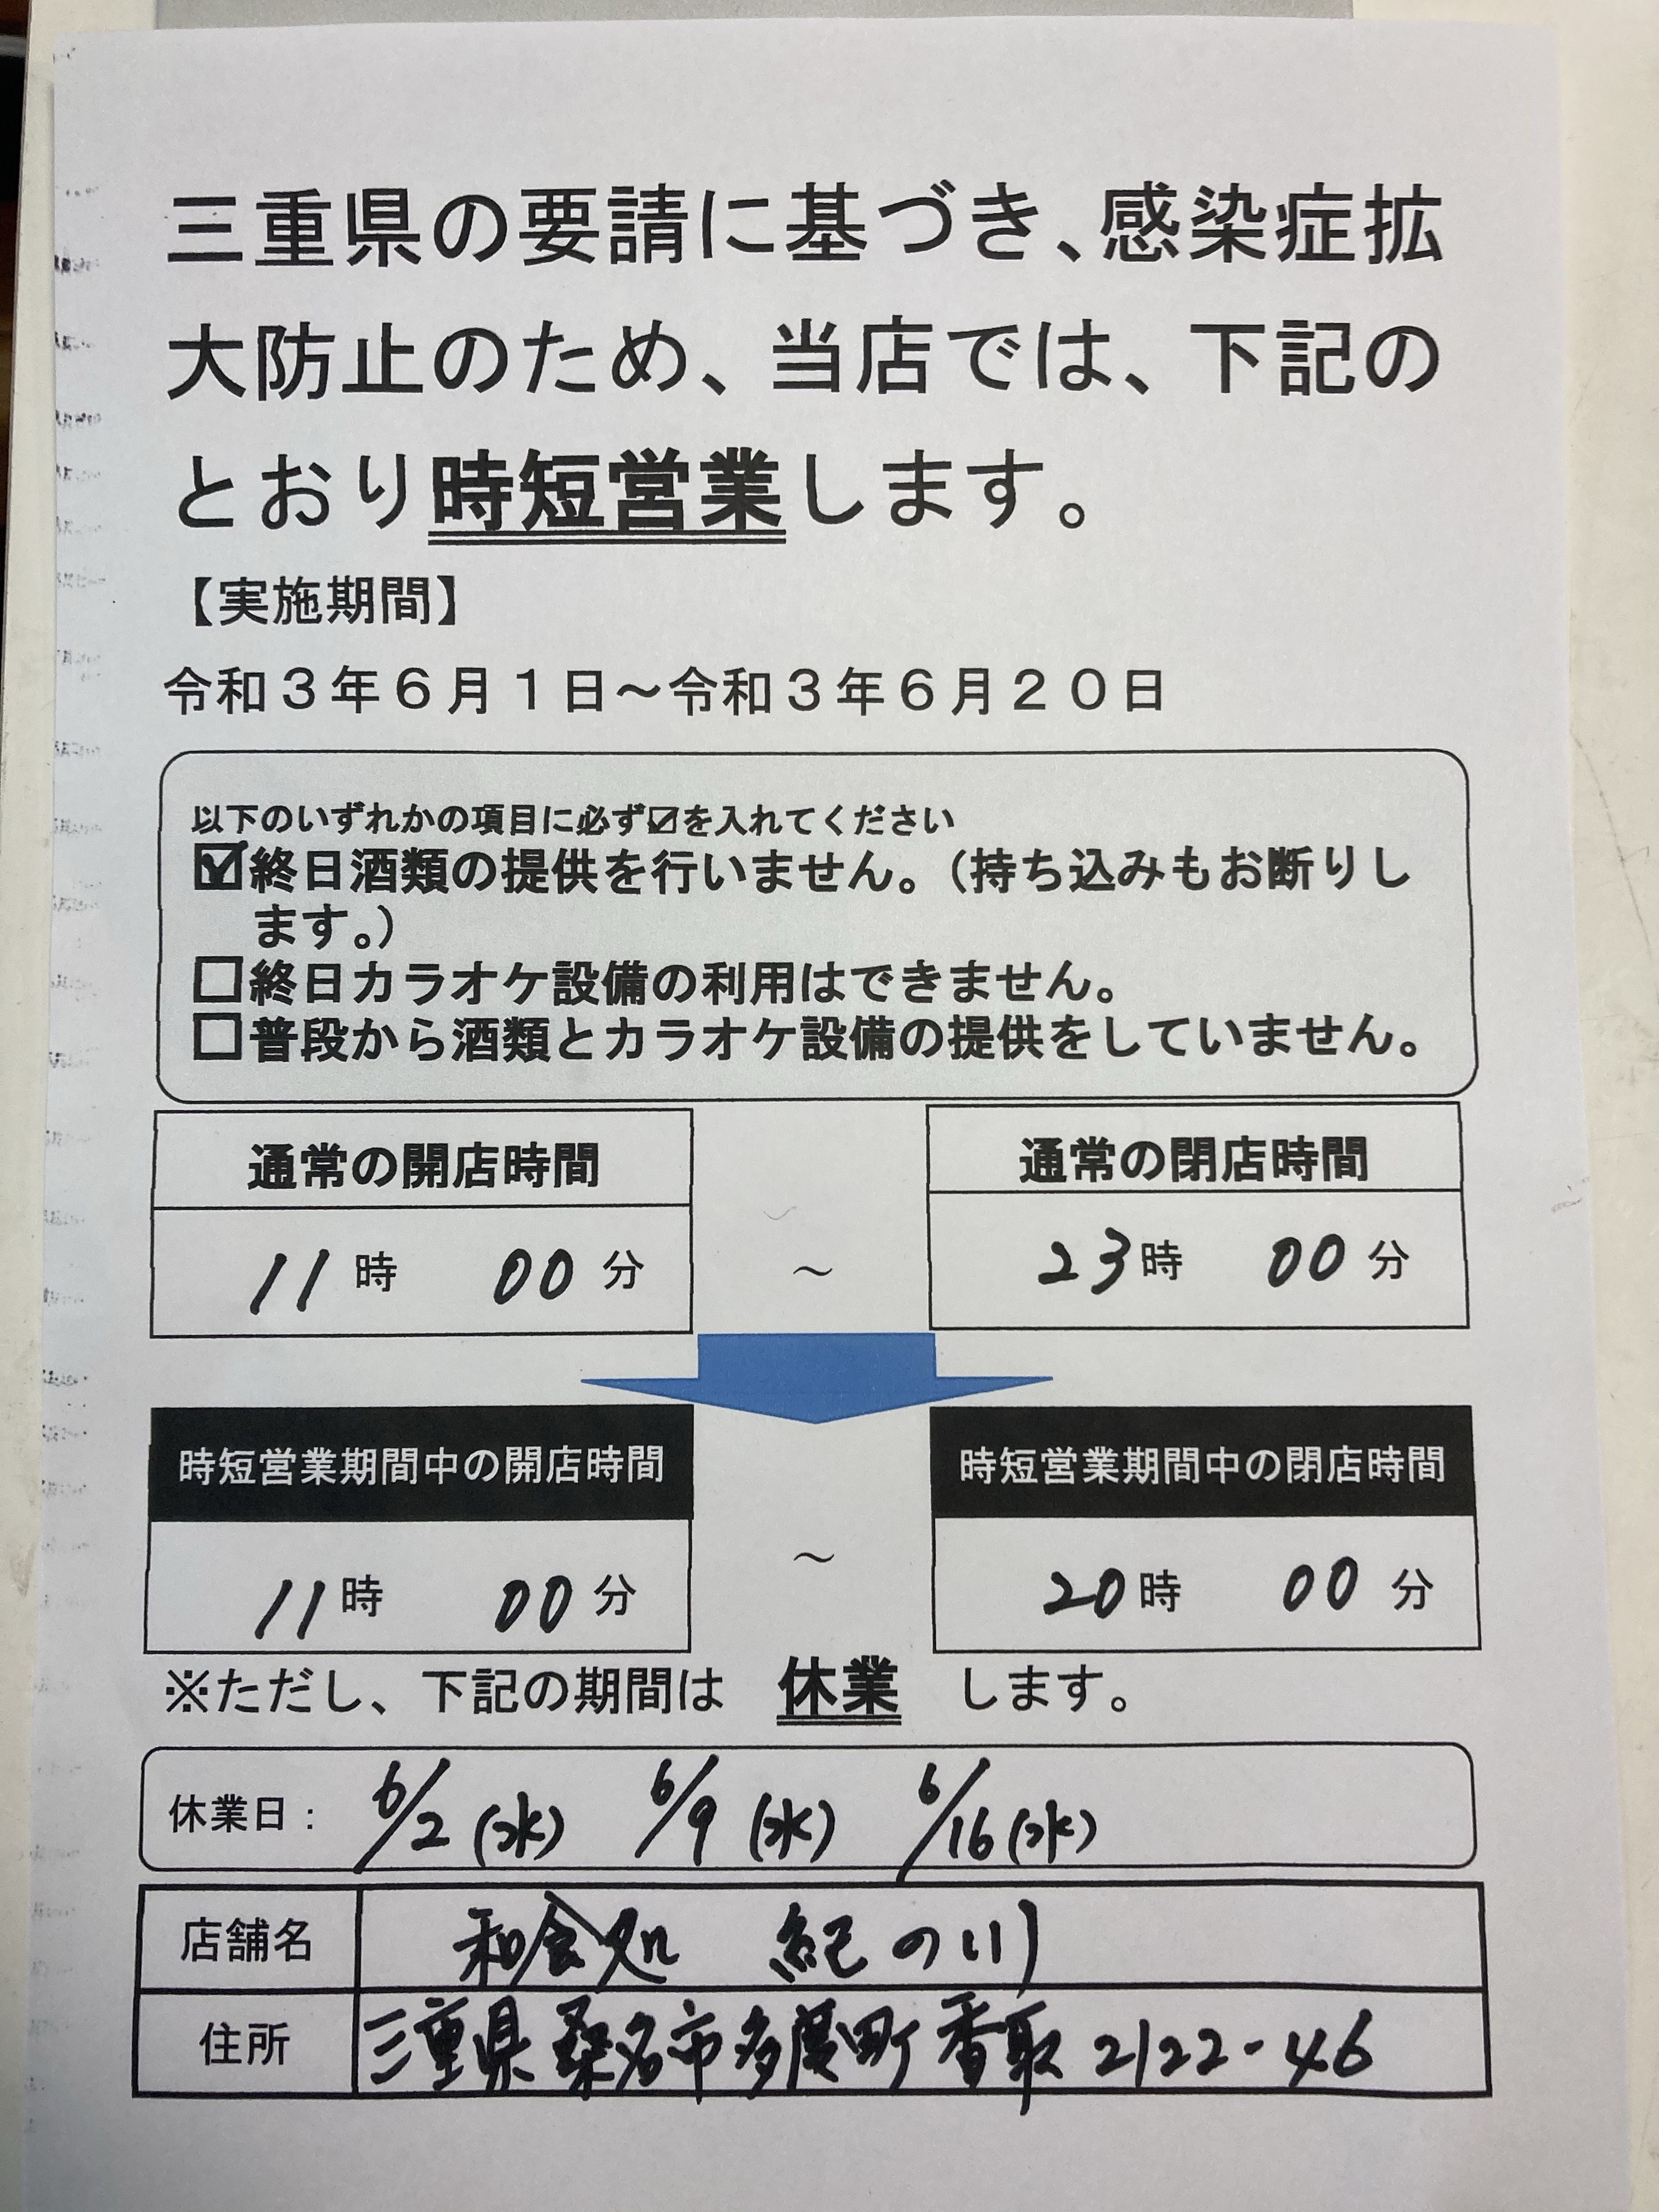 三重県の要請に基づき、感染症拡
大防止のため、当店では、下記の
とおり時短営業します。
【実施期間】
令和３年６月１日～令和３年６月２０日
以下のいずれかの項目に必ず☑を入れてください
☑終日酒類の提供を行いません。（持ち込みもお断りし
ます。）
□終日カラオケ設備の利用はできません。
□普段から酒類とカラオケ設備の提供をしていません。
通常の開店時間
通常の閉店時間
11時 00分 ～ 23時 00分
時短営業期間中の開店時間
時短営業期間中の閉店時間
11時 00分 ～ 20時 00分
※ただし、下記の期間は 休業 します。
休業日： 6/2(水) 6/9(水) 6/16(水)
店舗名 和食処 紀の川
住所 三重県桑名市多度町香取2122-46